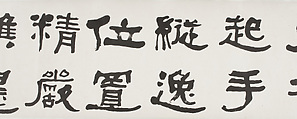 起手
縱逸
位置
精嚴